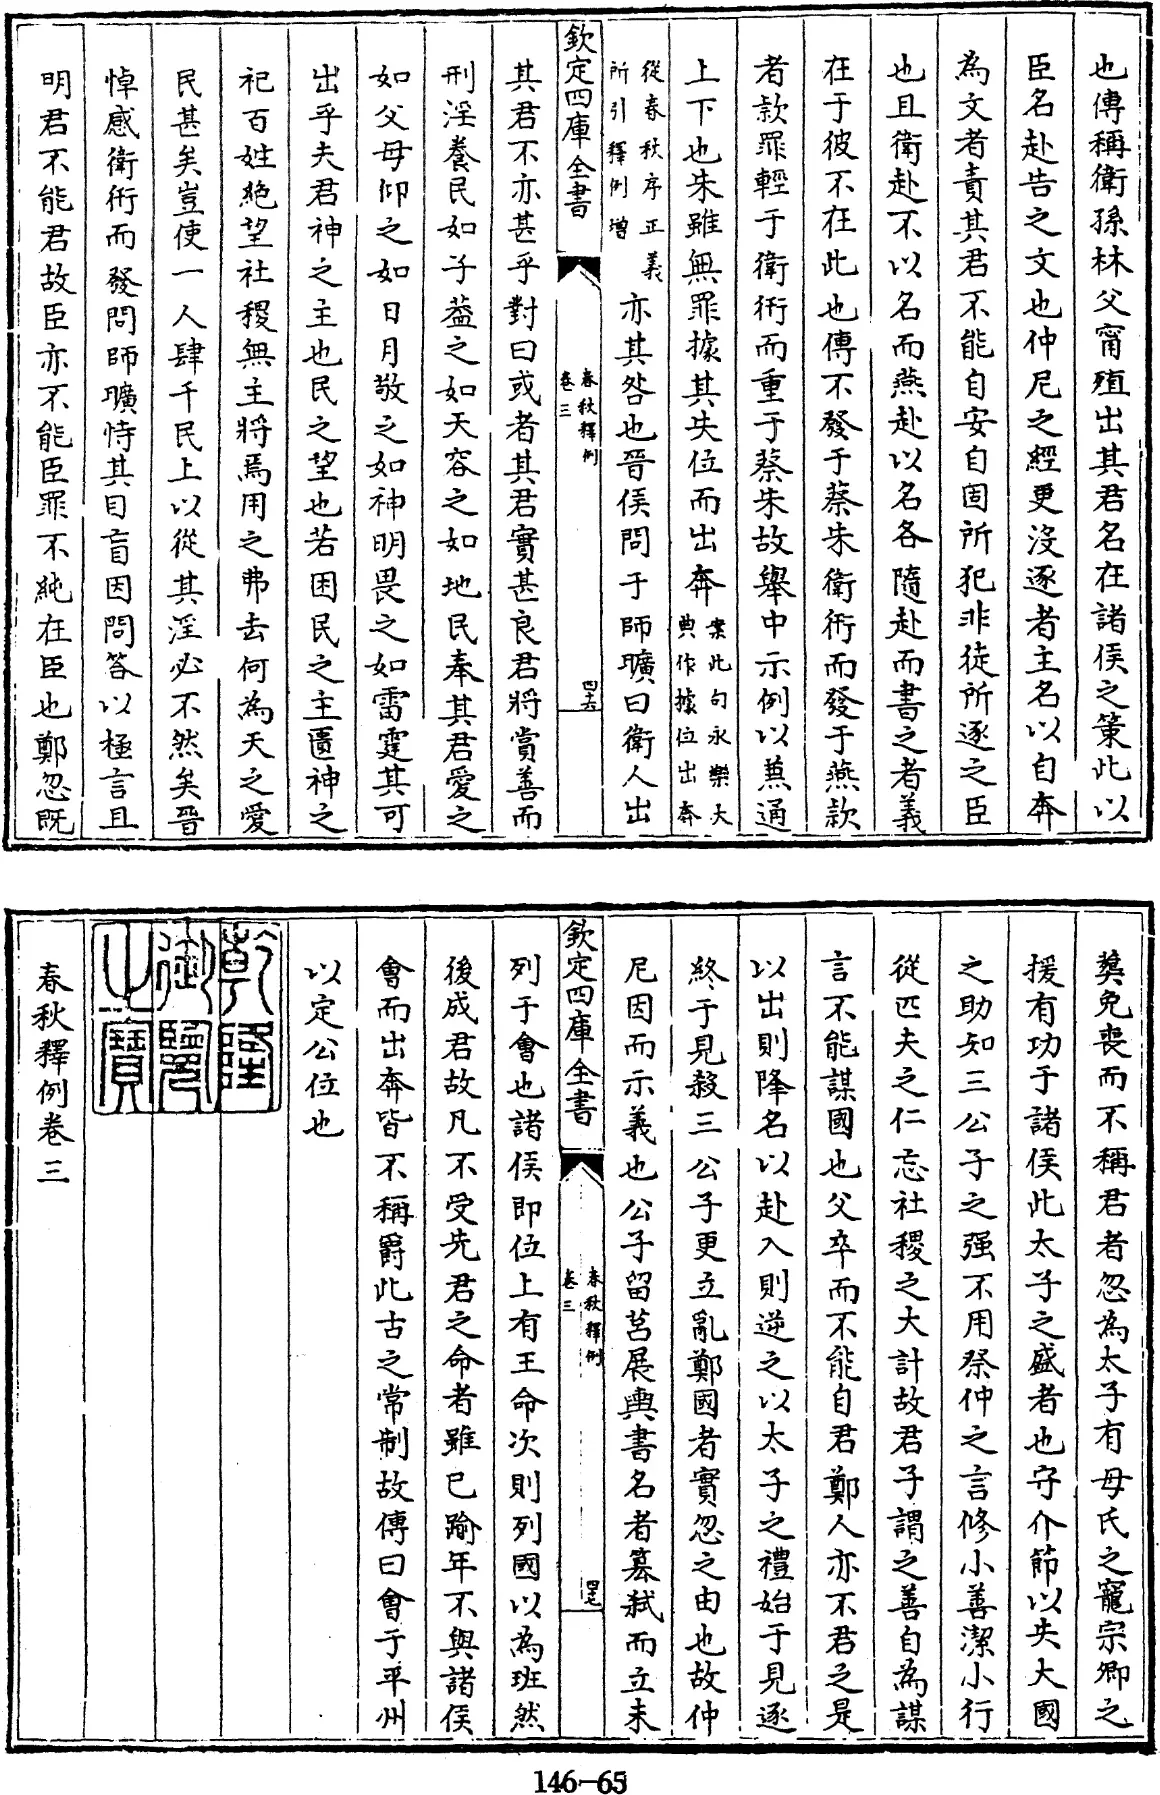 也傳稱衛孫林父甯殖出其君名在諸侯之策此以
臣名赴告之文也仲尼之經更沒逐者主名以自奔
為文者責其君不能自安自固所犯非徒所逐之臣
也且衛赴不以名而燕赴以名各隨赴而書之者義
在于彼不在此也傳不發于蔡朱衛衎而發于燕款
者款罪輕于衛衎而重于蔡朱故舉中示例以兼通
上下也朱雖無罪據其失位而出奔案此句永樂大
典作據位出奔
從春秋序正義
所引釋例增
亦其咎也晉侯問于師曠曰衛人出
欽定四庫全書
春秋釋例
卷三
四六
其君不亦甚乎對曰或者其君實甚良君將賞善而
刑淫養民如子蓋之如天容之如地民奉其君愛之
如父母仰之如日月敬之如神明畏之如雷霆其可
出乎夫君神之主也民之望也若困民之主匱神之
祀百姓絶望社稷無主將焉用之弗去何為天之愛
民甚矣豈使一人肆于民上以從其淫必不然矣晉
悼感衛衎而發問師曠恃其目盲因問答以極言且
明君不能君故臣亦不能臣罪不純在臣也鄭忽既
葬免喪而不稱君者忽為太子有母氏之寵宗卿之
援有功于諸侯此太子之盛者也守介節以失大國
之助知三公子之强不用祭仲之言修小善潔小行
從匹夫之仁忘社稷之大計故君子謂之善自為謀
言不能謀國也父卒而不能自君鄭人亦不君之是
以出則降名以赴入則逆之以太子之禮始于見逐
終于見殺三公子更立亂鄭國者實忽之由也故仲
尼因而示義也公子留莒展輿書名者篡弑而立未
欽定四庫全書
春秋釋例
卷三
四七
列于會也諸侯即位上有王命次則列國以為班然
後成君故凡不受先君之命者雖已踰年不與諸侯
會而出奔皆不稱爵此古之常制故傳曰會于平州
以定公位也
乾隆
御覽
之寶
春秋釋例卷三
146-65